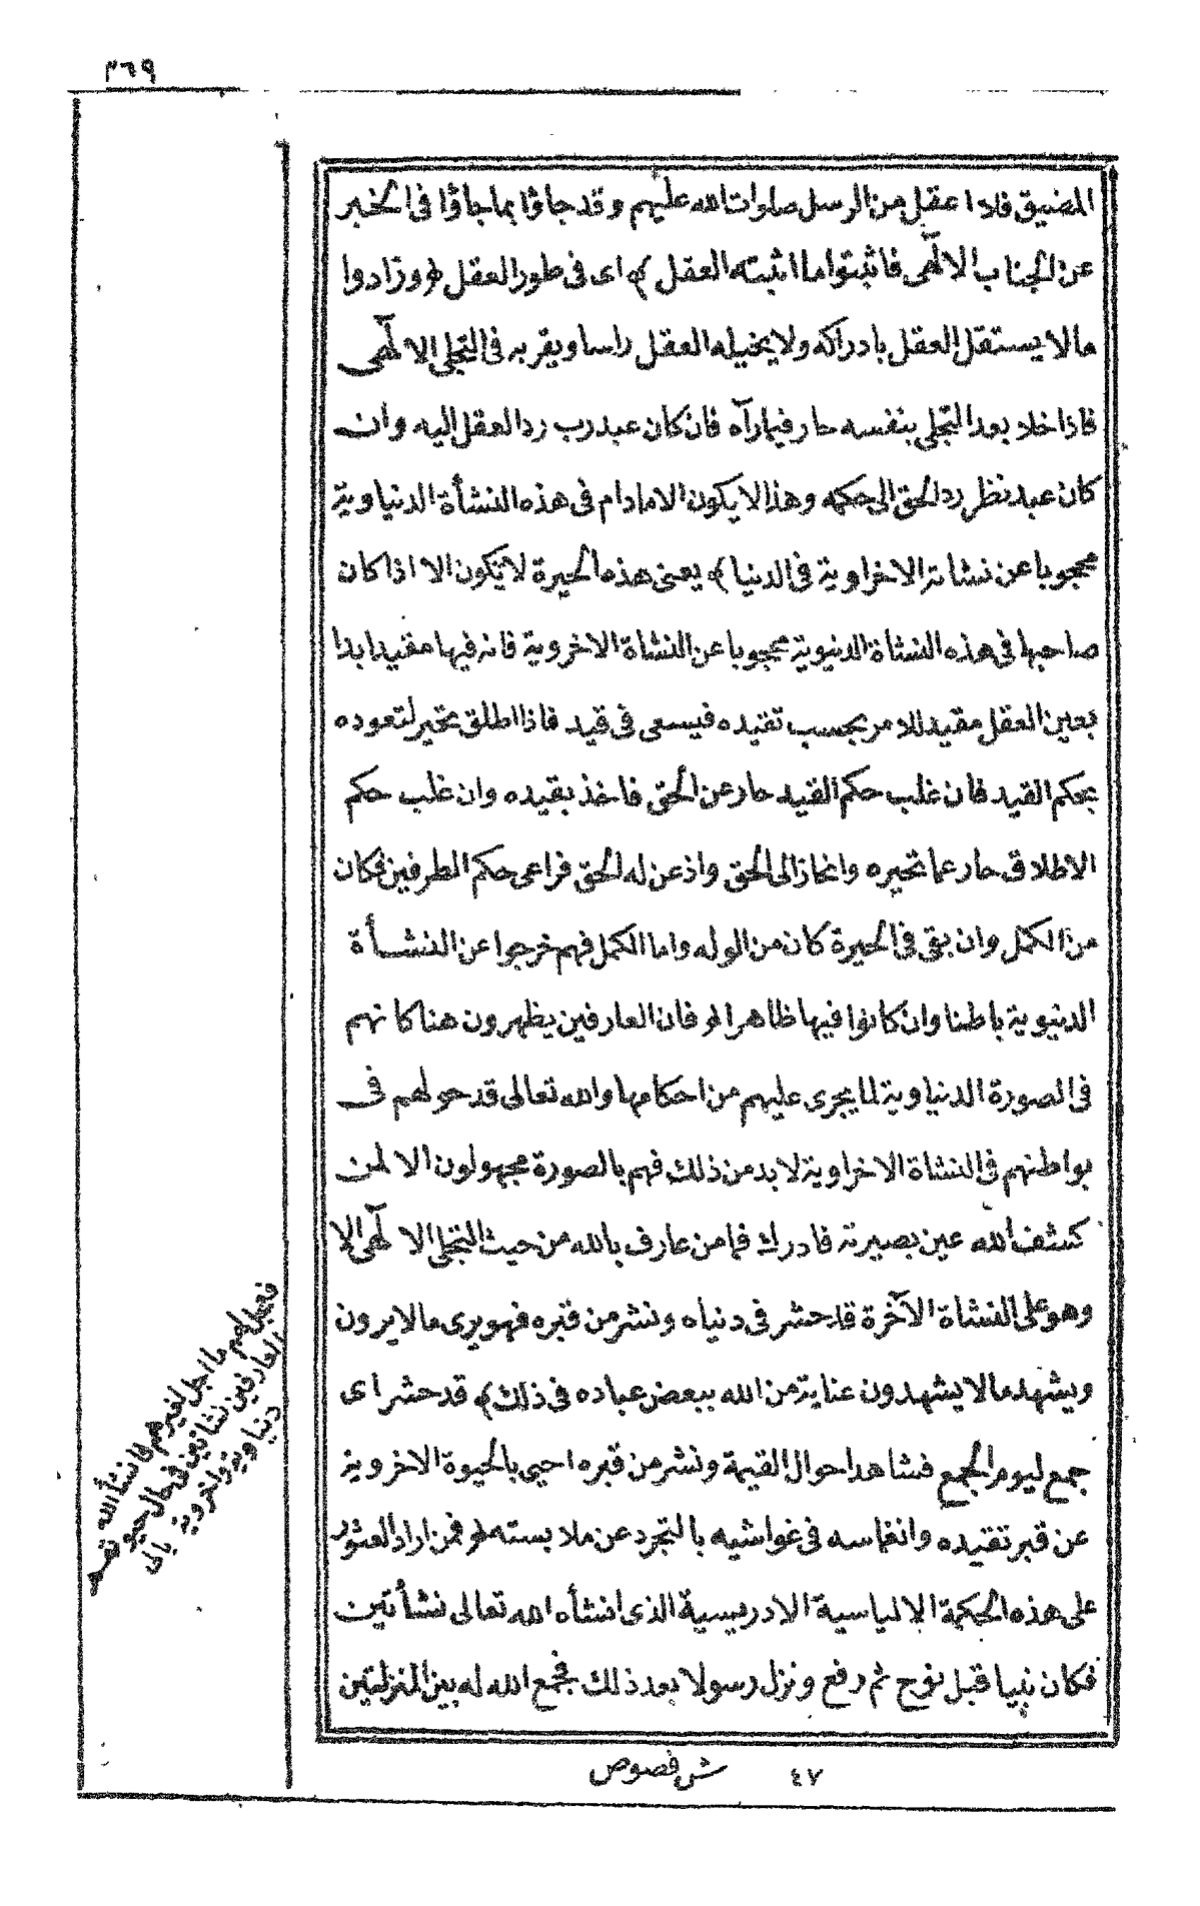 ٣٦٩
المضيق فلا اعقل من الرسل صلوات الله عليهم وقد جاؤا بما جاؤا فى الخبر
عن الجناب الالٓهى فاثبتوا ما اثبته العقل ﴾ اى فى طور العقل ﴿ وزادوا
مالا يستقل العقل بادراكه ولا يخيله العقل راسا ويقربه فى التجلى الالٓهى
فاذا خلا بعد التجلى بنفسه حار فيما رآه فان كان عبد رب رد العقل اليه وان
كان عبد نظر رد الحق الى حكمه وهذا لا يكون الا مادام فى هذه النشأة الدنياوية
محجوبا عن نشاته الاخراوية فى الدنيا ﴾ يعنى هذه الحيرة لا تكون الا اذا كان
صاحبها فى هذه النشاة الدنيوية محجوبا عن النشاة الاخروية فانه فيها مقيد ابدا
بعين العقل مقيد للامر بحسب تقيده فيسعى فى قيد فاذا اطلق تحير لتعوده
بحكم القيد فان غلب حكم القيد حار عن الحق فاخذ بقيده وان غلب حكم
الاطلاق حار عما تحيره وانحاز الى الحق واذعن له الحق فراعى حكم الطرفين فكان
من الكمل وان بقى فى الحيرة كان من الوله واما الكمل فهم خرجوا عن النشأة
الدنيوية باطنا وان كانوا فيها ظاهرا ﴿ فان العارفين يظهرون هنا كانهم
فى الصورة الدنياوية لما يجرى عليهم من احكامها والله تعالى قد حولهم فى
بواطنهم فى النشاة الاخراوية لا بد من ذلك فهم بالصورة مجهولون الا لمن
كشف الله عين بصيرته فادرك فما من عارف بالله من حيث التجلى الالٓهى الا
وهو على النشاة الآخرة قد حشر فى دنياه ونشر من قبره فهو يرى مالا يرون
ويشهد مالا يشهدون عناية من الله ببعض عباده فى ذلك ﴾ قد حشر اى
جمع ليوم الجمع فشاهد احوال القيمة ونشر من قبره احيى بالحيوة الاخروية
عن قبر تقيده وانغماسه فى غواشيه بالتجرد عن ملابسته ﴿ فمن اراد العثور
على هذه الحكمة الالياسية الادريسية الذى انشأه الله تعالى نشأتين
فكان نبيا قبل نوح ثم رفع ونزل رسولا بعد ذلك فجمع الله له بين المنزلتين
فعجل لهم ما اجل لغيرهم فانشأ الله تعـ
العارفين نشاتين فى حال حيو
دنياوية واخروية بالى
٤٧ ش فصوص